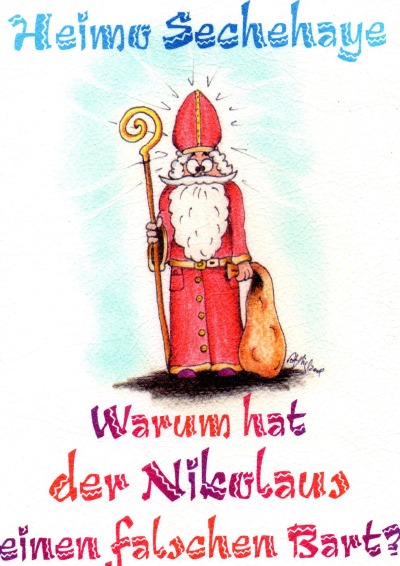 Heimo Sechehaye
Warum hat
der Nikolaus
einen falschen Bart?